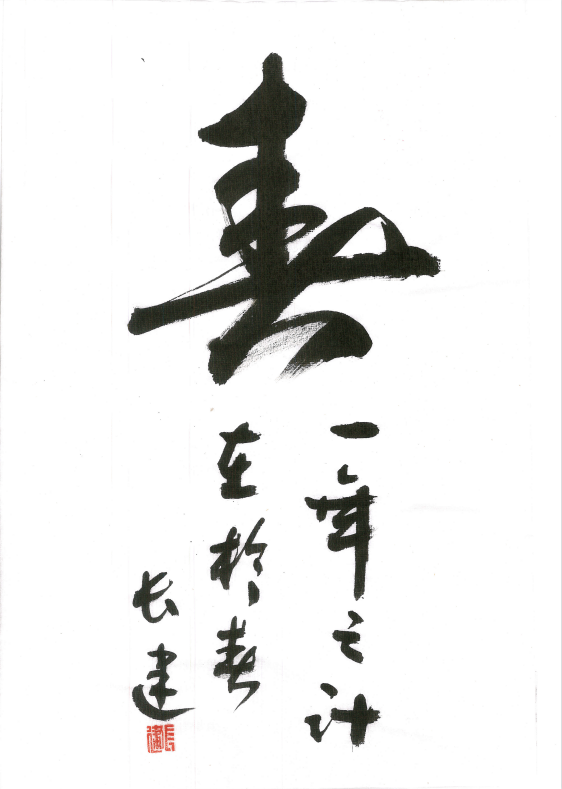 春
一年之计
在於春
长建
长建